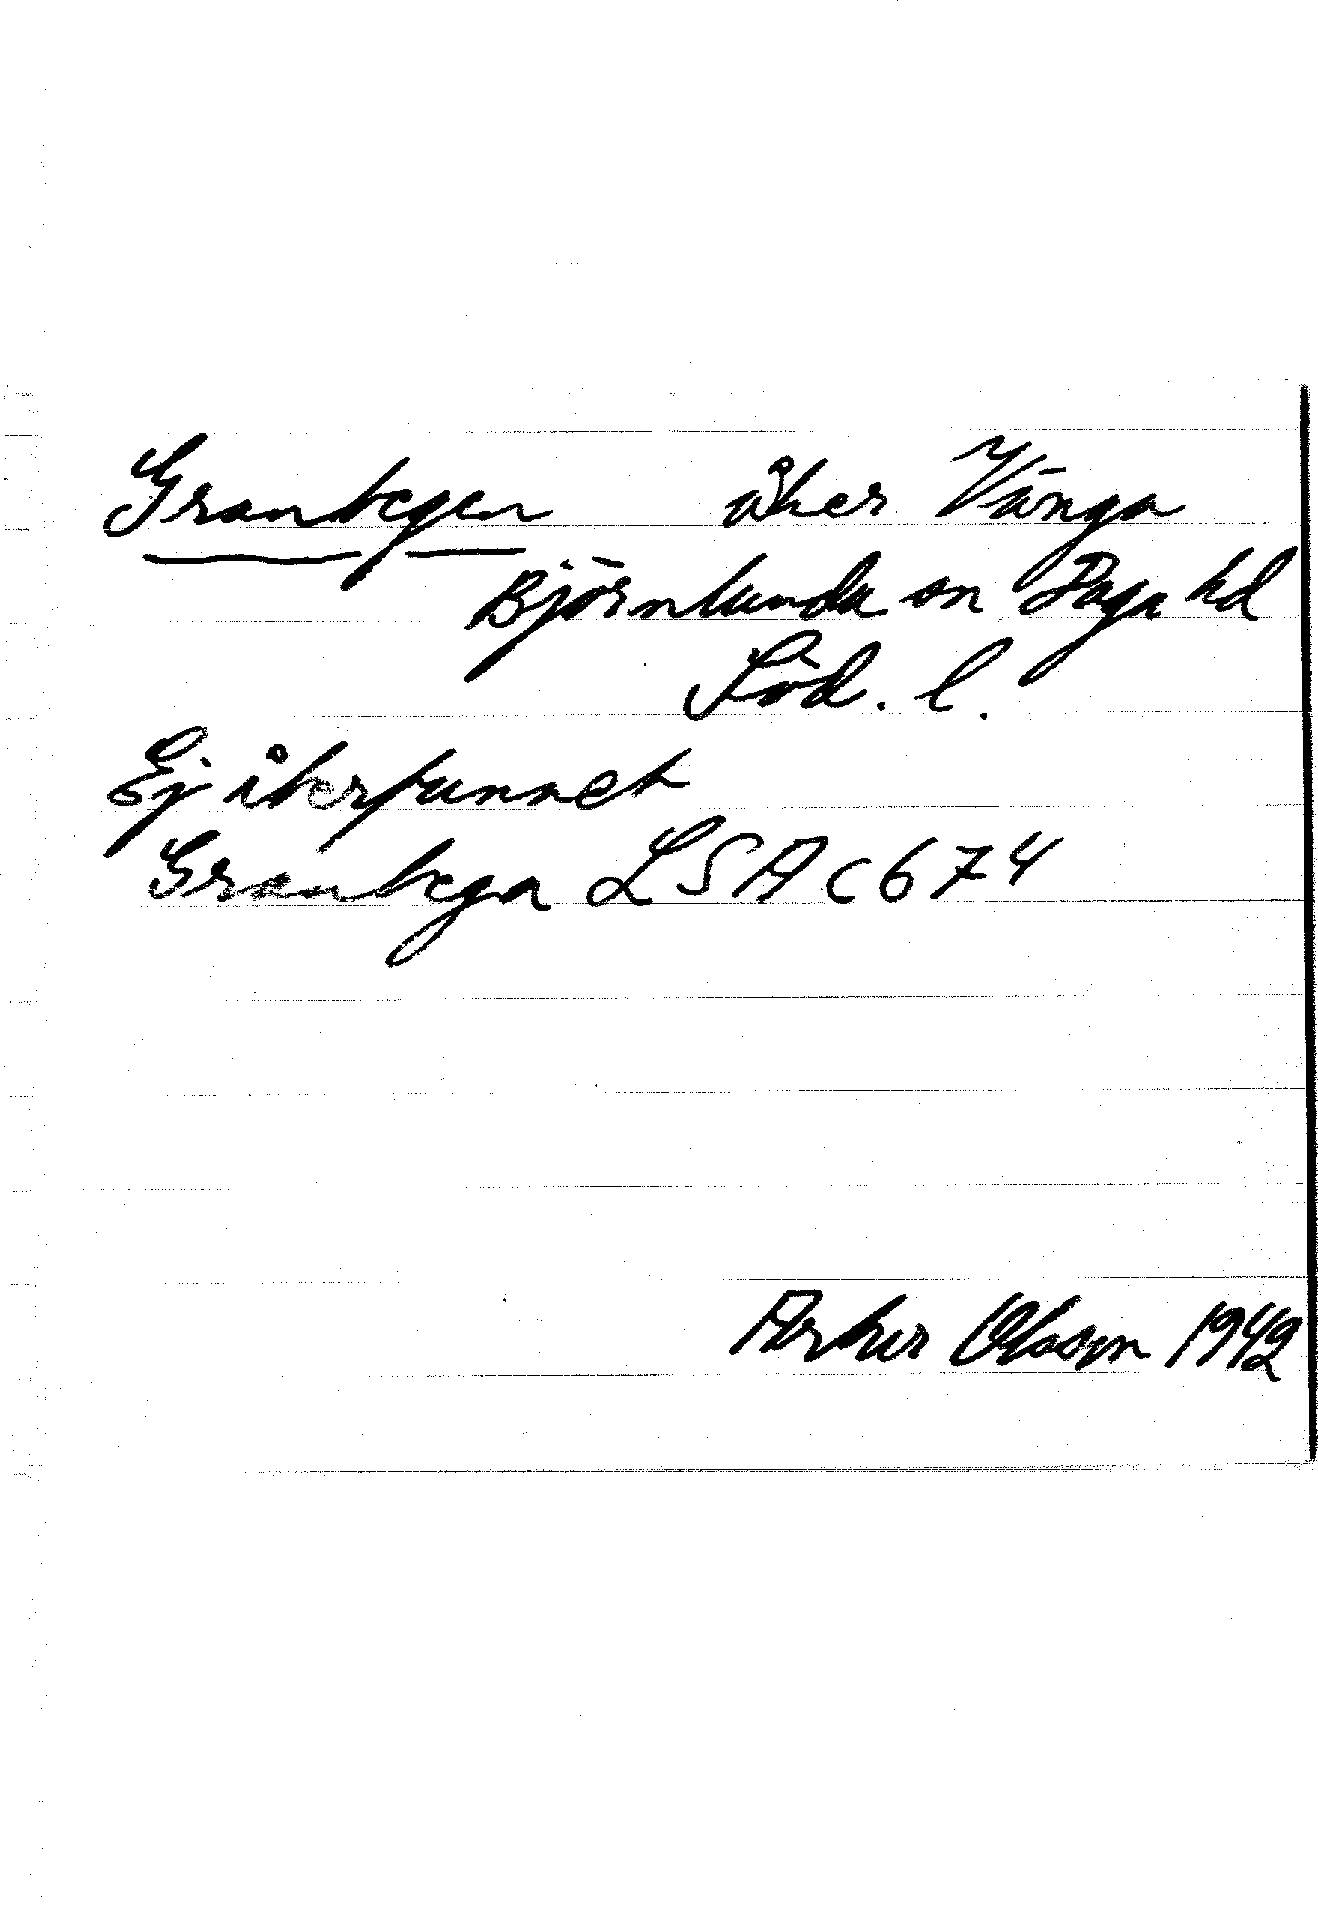 Grantegen åker Vänga
Björnlunda sn Daga hd
Söd. l.
Ej återfunnet
Grantega LSA C674
Arthur Olsson 1942